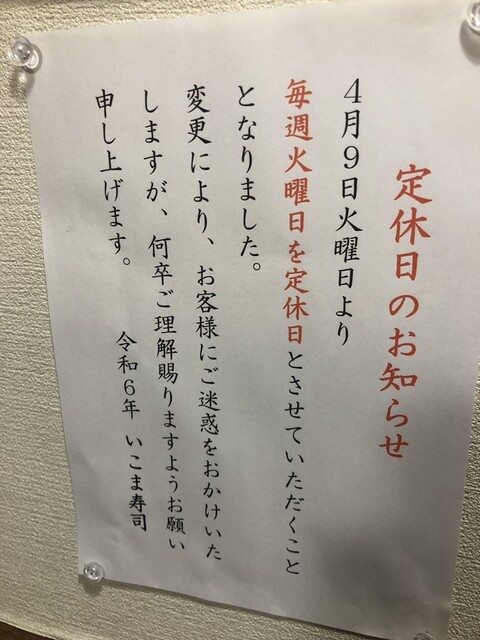 定休日のお知らせ
４月９日火曜日より
毎週火曜日を定休日とさせていただくこと
となりました。
変更により、お客様にご迷惑をおかけいた
しますが、何卒ご理解賜りますようお願い
申し上げます。
令和６年 いこま寿司